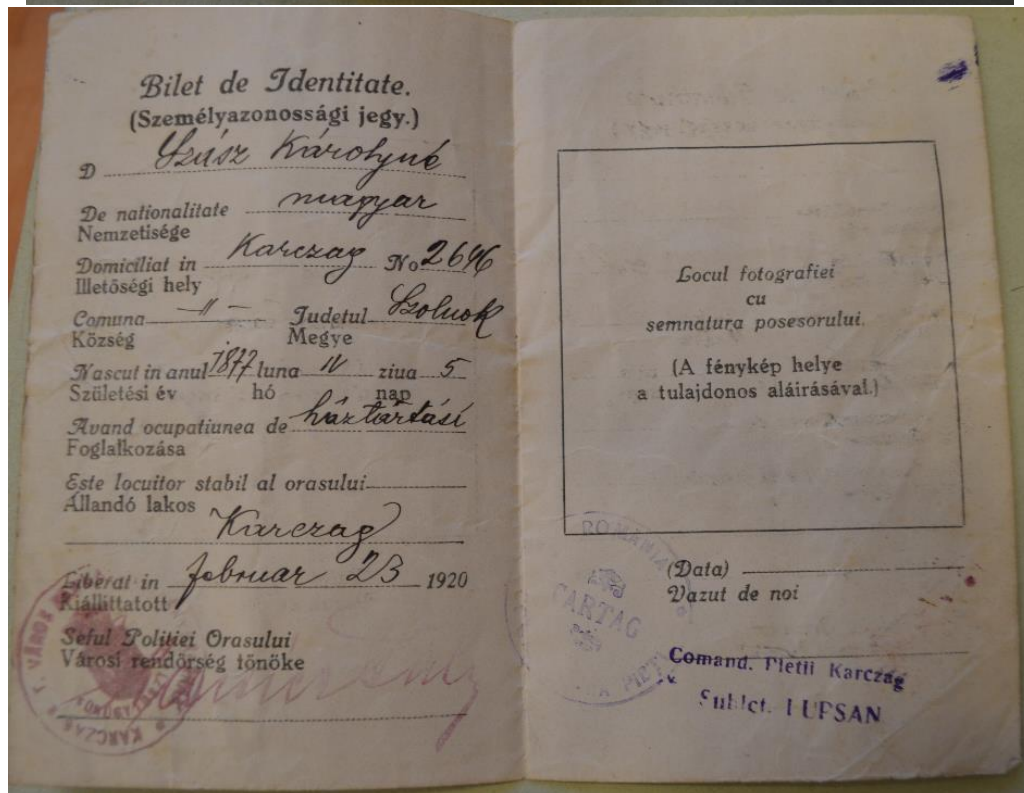 Bilet de Identitate.
(Személyazonossági jegy.)
D Szász Károlyné
De nationalitate magyar
Nemzetisége
Domiciliat in Karczag No 2646
Illetőségi hely
Comuna 〃 Judetul Szolnok
Község Megye
Nascut in anul 1877 luna IV ziua 5
Születési év hó nap
Avand ocupatiunea de háztartási
Foglalkozása
Este locuitor stabil al orasului
Állandó lakos
Karczag
Liberat in februar 23 1920
Kiállíttatott
Seful Politiei Orasului
Városi rendörség fönöke
KARCZAG VÁROS
Locul fotografiei
cu
semnatura posesorului.
(A fénykép helye
a tulajdonos aláírásával.)
ROMANIA
CARTAG
PIETII
(Data)
Vazut de noi
Comand. Pietii Karczag
Sublct. LUPSAN